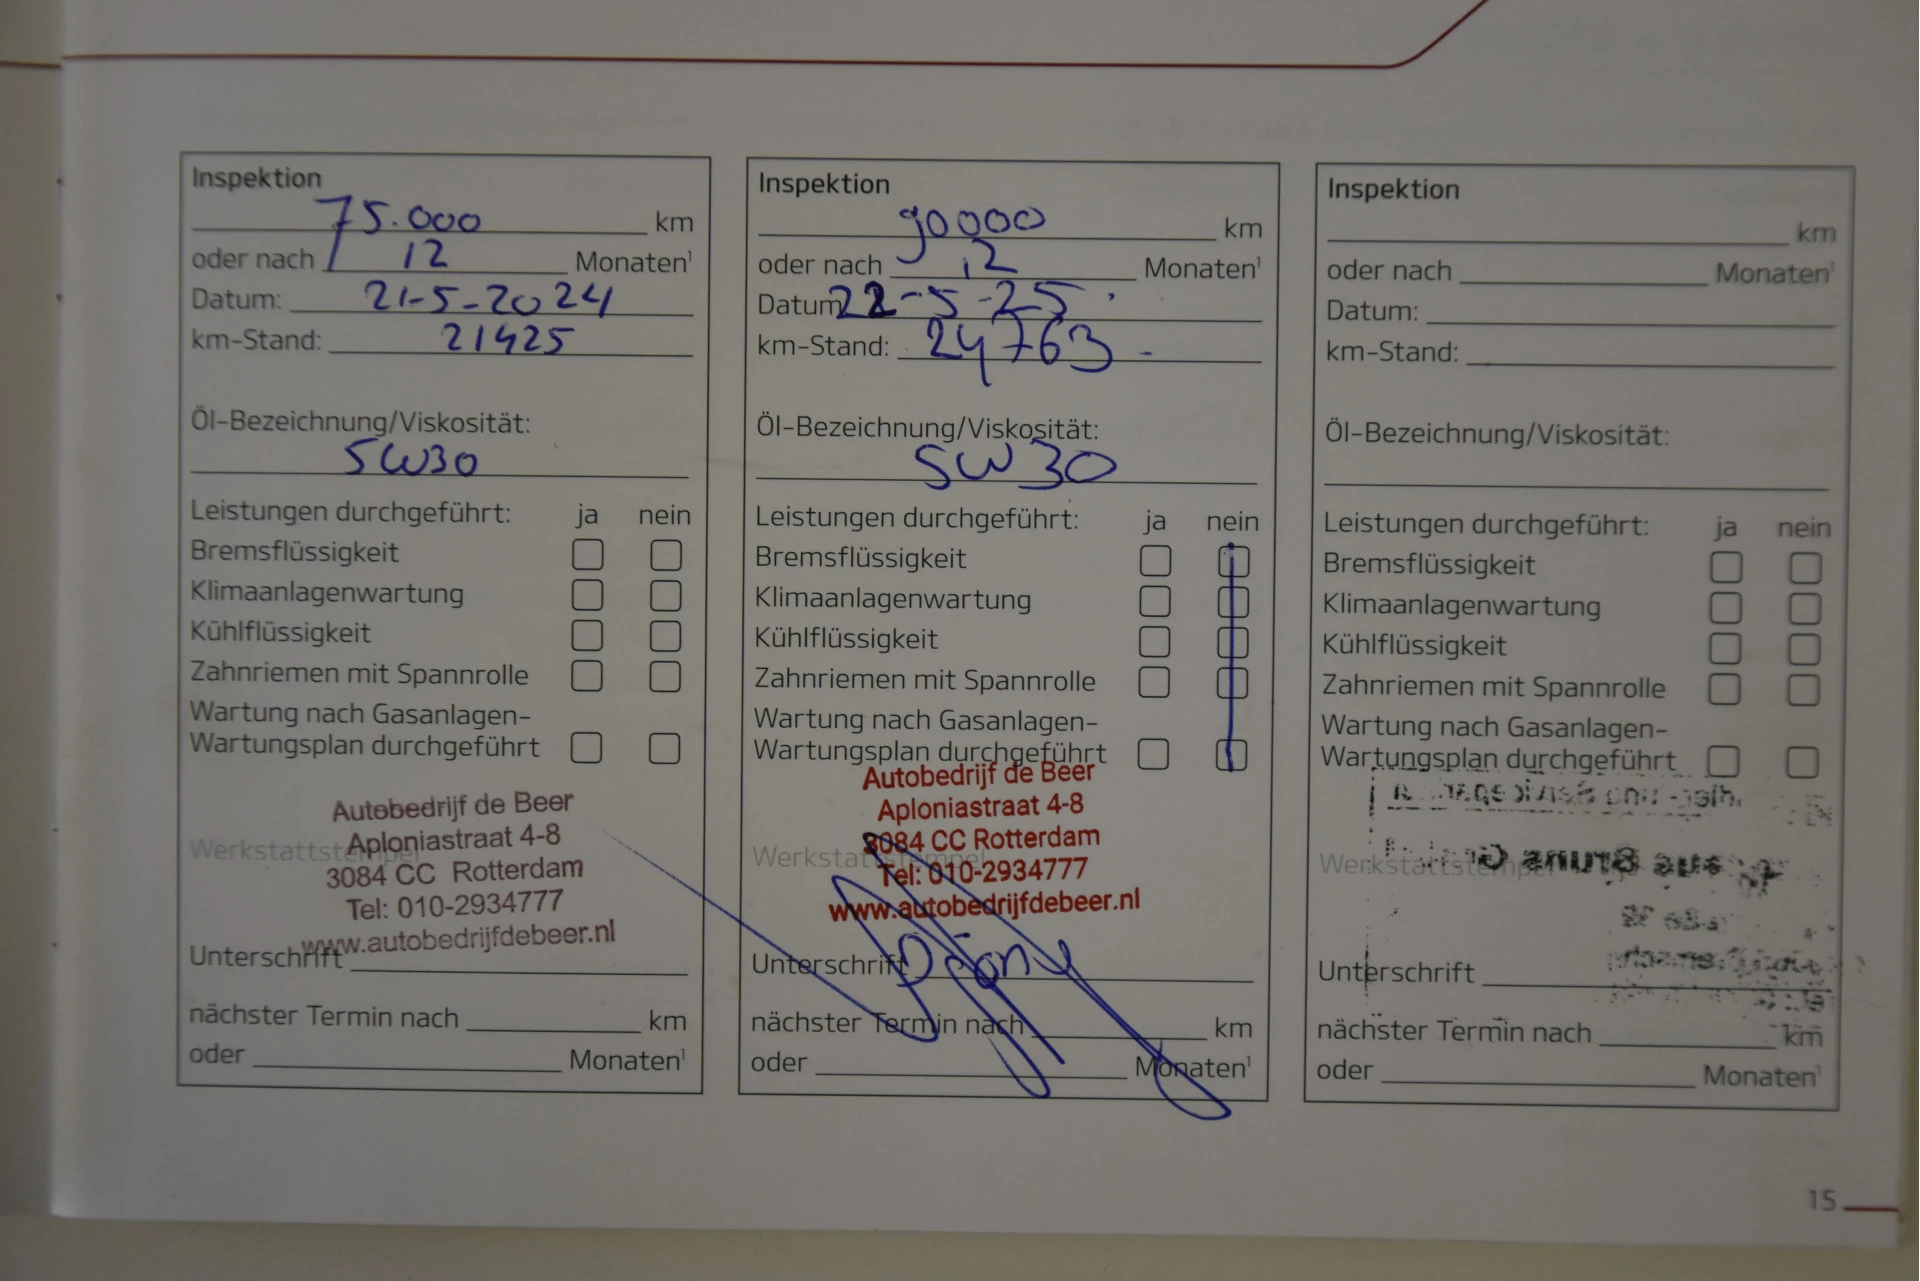 Inspektion
75.000 km
oder nach 12 Monaten¹
Datum: 21-5-2024
km-Stand: 21425
Öl-Bezeichnung/Viskosität:
5W30
Leistungen durchgeführt: ja nein
Bremsflüssigkeit
Klimaanlagenwartung
Kühlflüssigkeit
Zahnriemen mit Spannrolle
Wartung nach Gasanlagen-
Wartungsplan durchgeführt
Autobedrijf de Beer
Aploniastraat 4-8
Werkstattstempel
3084 CC Rotterdam
Tel: 010-2934777
www.autobedrijfdebeer.nl
Unterschrift
nächster Termin nach km
oder Monaten¹
Inspektion
90000 km
oder nach 12 Monaten¹
Datum 22-5-25.
km-Stand: 24763 -
Öl-Bezeichnung/Viskosität:
5W30
Leistungen durchgeführt: ja nein
Bremsflüssigkeit
Klimaanlagenwartung
Kühlflüssigkeit
Zahnriemen mit Spannrolle
Wartung nach Gasanlagen-
Wartungsplan durchgeführt
Autobedrijf de Beer
Aploniastraat 4-8
3084 CC Rotterdam
Werkstattstempel
Tel: 010-2934777
www.autobedrijfdebeer.nl
Unterschrift
nächster Termin nach km
oder Monaten¹
Inspektion
km
oder nach Monaten¹
Datum:
km-Stand:
Öl-Bezeichnung/Viskosität:
Leistungen durchgeführt: ja nein
Bremsflüssigkeit
Klimaanlagenwartung
Kühlflüssigkeit
Zahnriemen mit Spannrolle
Wartung nach Gasanlagen-
Wartungsplan durchgeführt
Werkstattstempel
Unterschrift
nächster Termin nach km
oder Monaten¹
15